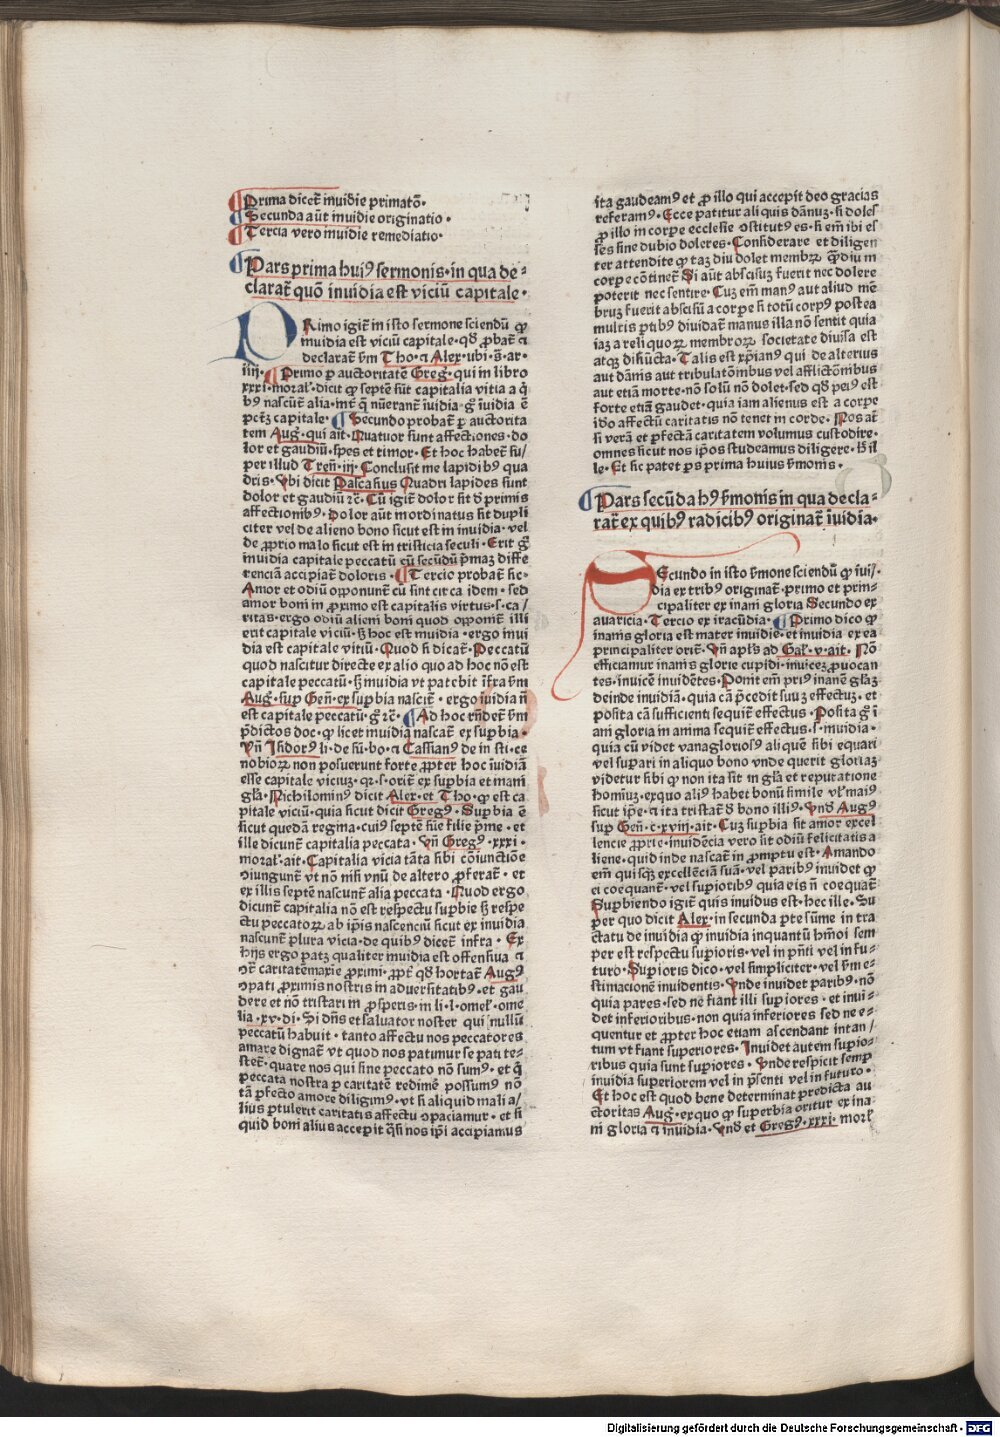 Prima dicet̃ inuidie primatõ·
Secunda aũt inuidie originatio·
Tercia vero inuidie remediatio·
Pars prima huiꝰ sermonis·in qua de⸗
clarat̃ quõ inuidia est viciũ capitale·
PRimo igit̃ in isto sermone sciendũ ꝙ
inuidia est viciũ capitale·qđ ꝓbat̃ ⁊
declarat̃ ẜm Tho·⁊ Alex·ubi·s̃·ar·
iiij· Primo ꝑ auctoritatẽ Greg̃·qui in libro
xxxi·moral̛·dicit ꝙ septẽ sũt capitalia vitia a q̃
bꝰ nascũt̃ alia·int̃ q̃ nũerant̃ ĩuidia g̃ ĩuidia ẽ
pctꝫ capitale· Secundo probat̃ ꝑ auctorita
tem Aug̃·qui ait·Quatuor sunt affectiones·do
lor et gaudiũ·spes et timor·Et hoc habet̃ su/
per illud Tren̄·iij·Conclusit me lapidibꝰ qua
dris·Vbi dicit Pascasius Quadri lapides sunt
dolor et gaudiũ ⁊c̃·Cũ igit̃ dolor sit đ primis
affectionibꝰ·Dolor aũt inordinatus sit dupli
citer vel de alieno bono sicut est in inuidia·vel
de ꝓprio malo sicut est in tristicia seculi·Erit g̃
inuidia capitale peccatũ cũ secũdũ p̃maꝫ diffe
renciã accipiat̃ doloris· Tercio probat̃ sic·
Amor et odiũ opponunt̃ cũ sint circa idem·sed
amor boni in ꝓximo est capitalis virtus·s·ca/
ritas·ergo odiũ alieni boni quod opponit̃ illi
erit capitale viciũ·sꝫ hoc est inuidia·ergo inui
dia est capitale vitiũ·Quod si dicat̃·Peccatũ
quod nascitur directe ex alio quo ad hoc nõ est
capitale peccatũ·sꝫ inuidia vt patebit ĩfra ẜm
Aug̃·suꝑ Geñ·ex suꝑbia nascit̃·ergo ĩuidia ñ
est capitale peccatũ·g̃ ⁊c̃· Ad hoc rñdet̃ ẜm
p̃dictos doc·ꝙ licet inuidia nascat̃ ex suꝑbia·
Vñ Isidorꝰ li·de sũ·bo·⁊ Cassianꝰ de insti·ce
nobioꝝ non posuerunt forte ꝓpter hoc ĩuidiã
esse capitale viciuꝫ·qꝛ·s·orit̃ ex suꝑbia et inani
gl̃a·Nichilominꝰ dicit Alex·et Tho·ꝙ est ca
pitale viciũ·quia sicut dicit Gregꝰ·Suꝑbia ẽ
sicut quedã regina·cuiꝰ septẽ sũt filie p̃me·et
ille dicunt̃ capitalia peccata·Vñ Gregꝰ·xxxi·
moral̛·ait·Capitalia vicia tãta sibi cõiunctiõe
ↄiungunt̃ vt nõ nisi vnũ de altero ꝓferat̃·et
ex illis septẽ nascunt̃ alia peccata·Quod ergo
dicunt̃ capitalia nõ est respectu suꝑbie sꝫ respe
ctu peccatoꝝ ab ip̃is nascenciũ sicut ex inuidia
nascunt̃ plura vicia·de quibꝰ dicet̃ infra·Ex
hijs ergo patꝫ qualiter inuidia est offensiua ⁊
ↄt̃ caritatẽ maxie ꝓximi·ꝓpt̃ qđ hortat̃ Augꝰ
ↄpati ꝓximis nostris in aduersitatibꝰ·et gau
dere et nõ tristari in ꝓsperis·in li·l·omel̛·ome
lia·xv·di·Si dñs et saluator noster qui nullũ
peccatũ habuit·tanto affectu nos peccatores
amare dignat̃ vt quod nos patimur se pati te⸗
stet̃·quare nos qui sine peccato nõ sumꝰ·et q̃
peccata nostra ꝑ caritatẽ redimẽ possumꝰ nõ
tã ꝑfecto amore diligimꝰ·vt si aliquid mali a/
lius ꝑtulerit caritatis affectu ↄpaciamur·et si
quid boni alius accepit q̃si nos ip̃i accipiamus
ita gaudeamꝰ et ꝓ illo qui accepit deo gracias
referamꝰ·Ecce patitur aliquis dãnuꝫ·si doles
ꝓ illo in corpe ecclesie ↄstitutꝰ es·si em̃ ibi es
ses sine dubio doleres·Considerare et diligen
ter attendite ꝙ taꝫ diu dolet membꝝ q̃diu in
corpe cõtinet̃ Si aũt abscisuꝫ fuerit nec dolere
poterit nec sentire·Cuꝫ em̃ manꝰ aut aliud mẽ
bruꝫ fuerit abscisũ a corpe si totũ corpꝰ postea
multis ꝑtibꝰ diuidat̃ manus illa nõ sentit quia
iaꝫ a reliquoꝝ membroꝝ societate diuisa est
atqꝫ disiũcta·Talis est xp̃ianꝰ qui de alterius
aut dãnis aut tribulatõnibus vel afflictõnibus
aut etiã morte·nõ solũ nõ dolet·sed qđ peiꝰ est
forte etiã gaudet·quia iam alienus est a corpe
ido affectũ caritatis nõ tenet in corde·Nos at̃
si verã et ꝑfectã caritatem volumus custodire·
omnes sicut nos ip̃os studeamus diligere·h̃ il
le·Et sic patet ps prima huius ẜmonis·
Pars secũda hꝰ ẜmonis in qua decla⸗
rat̃ ex quibꝰ radicibꝰ originat̃ ĩuidia·
SEcundo in isto ẜmone sciendũ ꝙ ĩui/
dia ex tribꝰ originat̃·primo et prin⸗
cipaliter ex inani gloria Secundo ex
auaricia·Tercio ex iracũdia· Primo dico ꝙ
inanis gloria est mater inuidie·et inuidia ex ea
principaliter orit̃·Vñ apl̃s ad Gal̛·v·ait·Nõ
efficiamur inanis glorie cupidi·inuiceꝫ ꝓuocan
tes·inuicẽ inuidẽtes·Ponit em̃ priꝰ inanẽ gl̃aꝫ
deinde inuidiã·quia cã p̃cedit suuꝫ effectuꝫ·et
posita cã sufficienti sequit̃ effectus·Posita g̃ ĩ
ani gloria in anima sequit̃ effectus·s·inuidia·
quia cũ videt vanagloriosꝰ aliquẽ sibi equari
vel suꝑari in aliquo bono vnde querit gloriaꝫ
videtur sibi ꝙ non ita sit in gl̃a et reputatione
hominuꝫ·exquo aliꝰ habet bonũ simile vl̛ maiꝰ
sicut ip̃e·⁊ ita tristat̃ đ bono illiꝰ·Vnđ Augꝰ
suꝑ Geñ·c·xviij·ait·Cuꝫ suꝑbia sit amor excel
lencie ꝓprie·inuidẽcia vero sit odiũ felicitatis a
liene·quid inde nascat̃ in ꝓmptu est·Amando
em̃ quisqꝫ excellẽciã suã·vel paribꝰ inuidet ꝙ
ei coequant̃·vel suꝑioribꝰ quia eis ñ coequat̃
Suꝑbiendo igit̃ quis inuidus est·hec ille·Su
per quo dicit Alex·in secunda ꝑte sũme in tra
ctatu de inuidia ꝙ inuidia inquantũ hm̃oi sem
per est respectu suꝑioris·vel in pñti vel in fu⸗
turo·Suꝑioris dico·vel simpliciter·vel ẜm e⸗
stimacionẽ inuidentis·Vnde inuidet paribꝰ·nõ
quia pares·sed ne fiant illi suꝑiores·et inui⸗
det inferioribus·non quia inferiores sed ne e⸗
quentur et ꝓpter hoc etiam ascendant intan/
tum vt fiant superiores·Inuidet autem suꝑio⸗
ribus quia sunt suꝑiores·Vnde respicit semꝑ
inuidia superiorem vel in p̃senti vel in futuro·
Et hoc est quod bene determinat predicta au
ctoritas Aug·exquo ꝙ superbia oritur ex ina⸗
ni gloria ⁊ inuidia·Vnđ et Gregꝰ·xxxi·morl̛
Digitalisierung gefördert durch die Deutsche Forschungsgemeinschaft - DFG